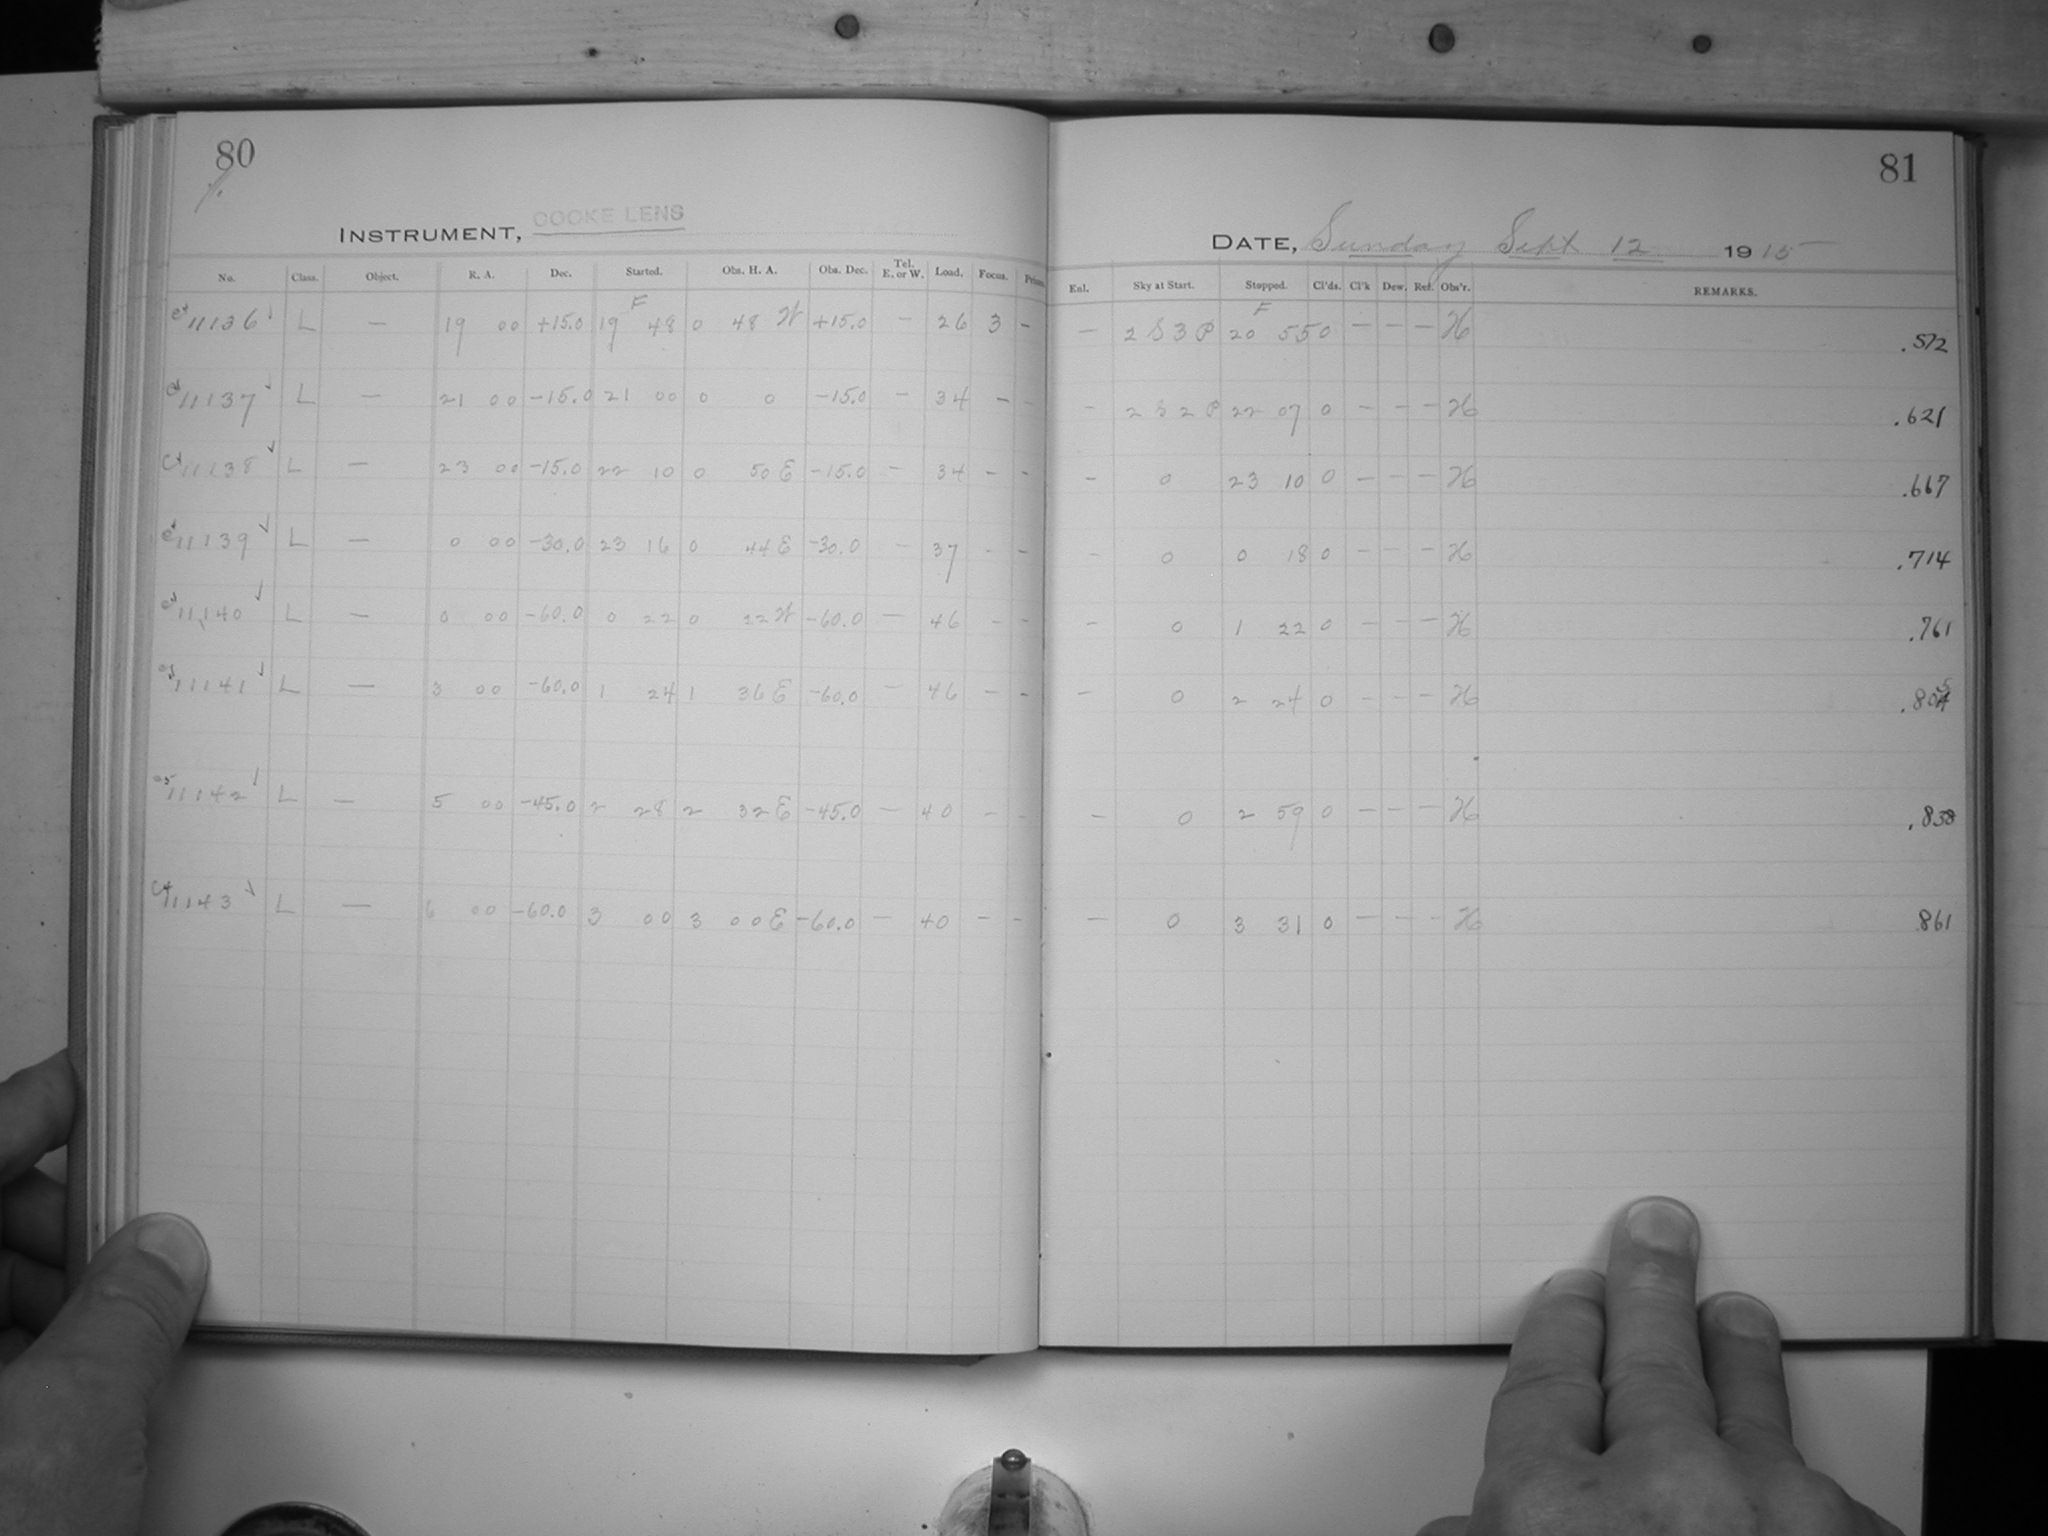 80
INSTRUMENT, COOKE LENS
No. Class. Object. R. A. Dec. Started. Obs. H. A. Obs. Dec. Tel. E. or W. Load. Focus. Prism.
11136 L — 19 00 +15.0 19 F 48 0 48 W +15.0 — 26 3 –
11137 L — 21 00 -15.0 21 00 0 0 -15.0 — 34 – –
11138 L — 23 00 -15.0 22 10 0 50 E -15.0 — 34 – –
11139 L — 0 00 -30.0 23 16 0 44 E -30.0 — 37 – –
11140 L — 0 00 -60.0 0 22 0 22 W -60.0 — 46 – –
11141 L — 3 00 -60.0 1 24 1 36 E -60.0 — 46 – –
11142 L — 5 00 -45.0 2 28 2 32 E -45.0 — 40 – –
11143 L — 6 00 -60.0 3 00 3 00 E -60.0 — 40 – –
81
DATE, Sunday Sept 12 1915
Enl. Sky at Start. Stopped. Cl'ds. Cl'k Dew. Ref. Obs'r. REMARKS.
— 2 S 3 P 20 F 55 0 — — — H .572
– 2 S 2 P 22 07 0 – – – H .621
– 0 23 10 0 – – – H .667
– 0 0 18 0 – – – H .714
– 0 1 22 0 – – – H .761
– 0 2 24 0 – – – H
– 0 2 59 0 – – – H .838
— 0 3 31 0 — – – H .861